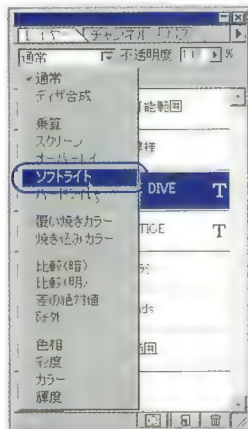 チャンネル
通常 不透明度 %
通常
ディザ合成
乗算
スクリーン
オーバーレイ
ソフトライト
ハードライト
覆い焼きカラー
焼き込みカラー
比較(暗)
比較(明)
差の絶対値
除外
色相
彩度
カラー
輝度
DIVE T
T